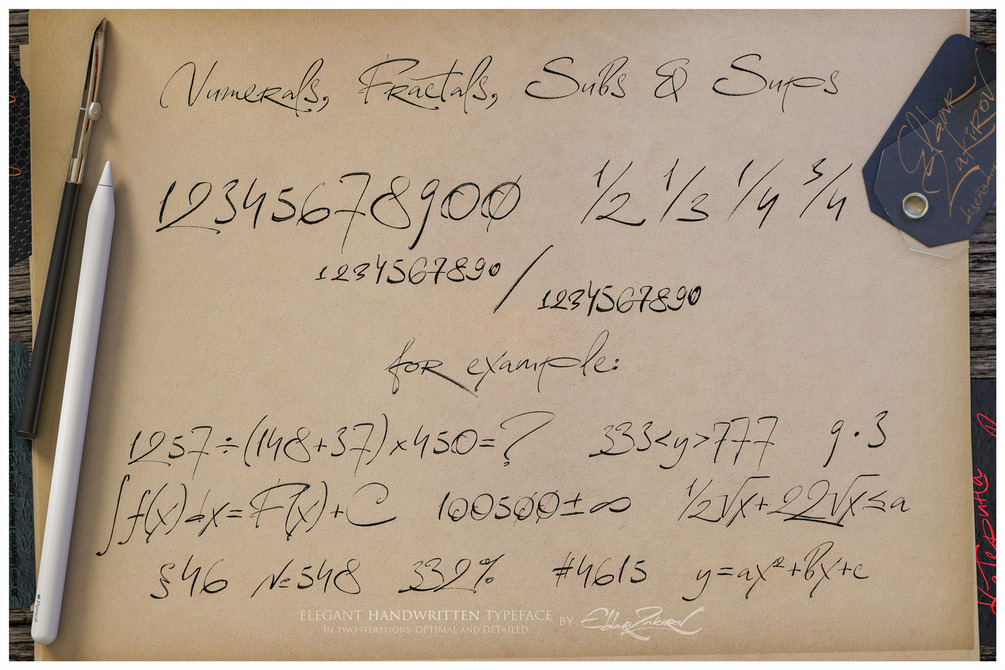 Numerals, Fractals, Subs & Sups
12345678900 1/2 1/3 1/4 3/4
1234567890/1234567890
for example:
1257÷(148+37)×450=? 333<y>777 9·3
∫f(x)dx=F(x)+C 100500±∞ 1/2√x+22√x≤a
§46 №548 332% #4615 y=ax²+bx+c
ELEGANT HANDWRITTEN TYPEFACE BY Eldar Zakirov
IN TWO ITERATIONS: OPTIMAL AND DETAILED
Eldar
Zakirov
diseñador